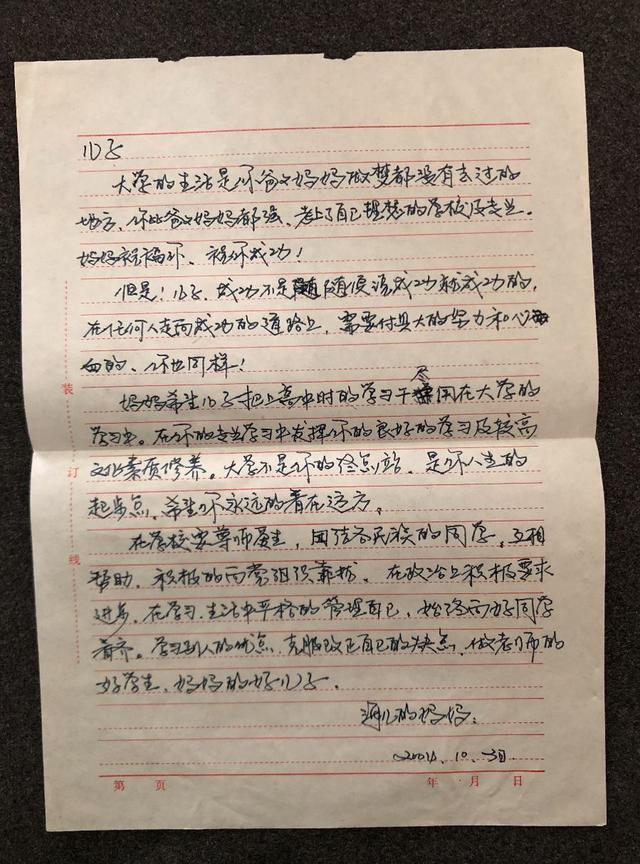 儿子
大学的生活是你爸爸妈妈做梦都没有去过的
地方、你比爸爸妈妈都强、考上了自己理想的学校及专业.
妈妈祝福你、祝你成功!
但是!儿子.成功不是随便说成功就成功的,
在任何人走向成功的道路上,需要付具大的努力和心
血的、你也同样!
妈妈希望儿子把上高中时的学习干尽用在大学的
学习中。在你的专业学习中发挥你的良好的学习及较高
文化素质修养。大学不是你的终点站、是你人生的
起步点、希望你永远的看在远方。
在学校要尊师爱生,团结各民族的同学、互相
帮助、积极的向党组织靠拢、在政治上积极要求
进步、在学习.生活中严格的管理自己、始终向好同学
看齐。学习别人的优点、克服改正自己的缺点、做老师的
好学生、妈妈的好儿子.
的妈妈:
2004.10.3日
装
订
线
第 页
年 月 日